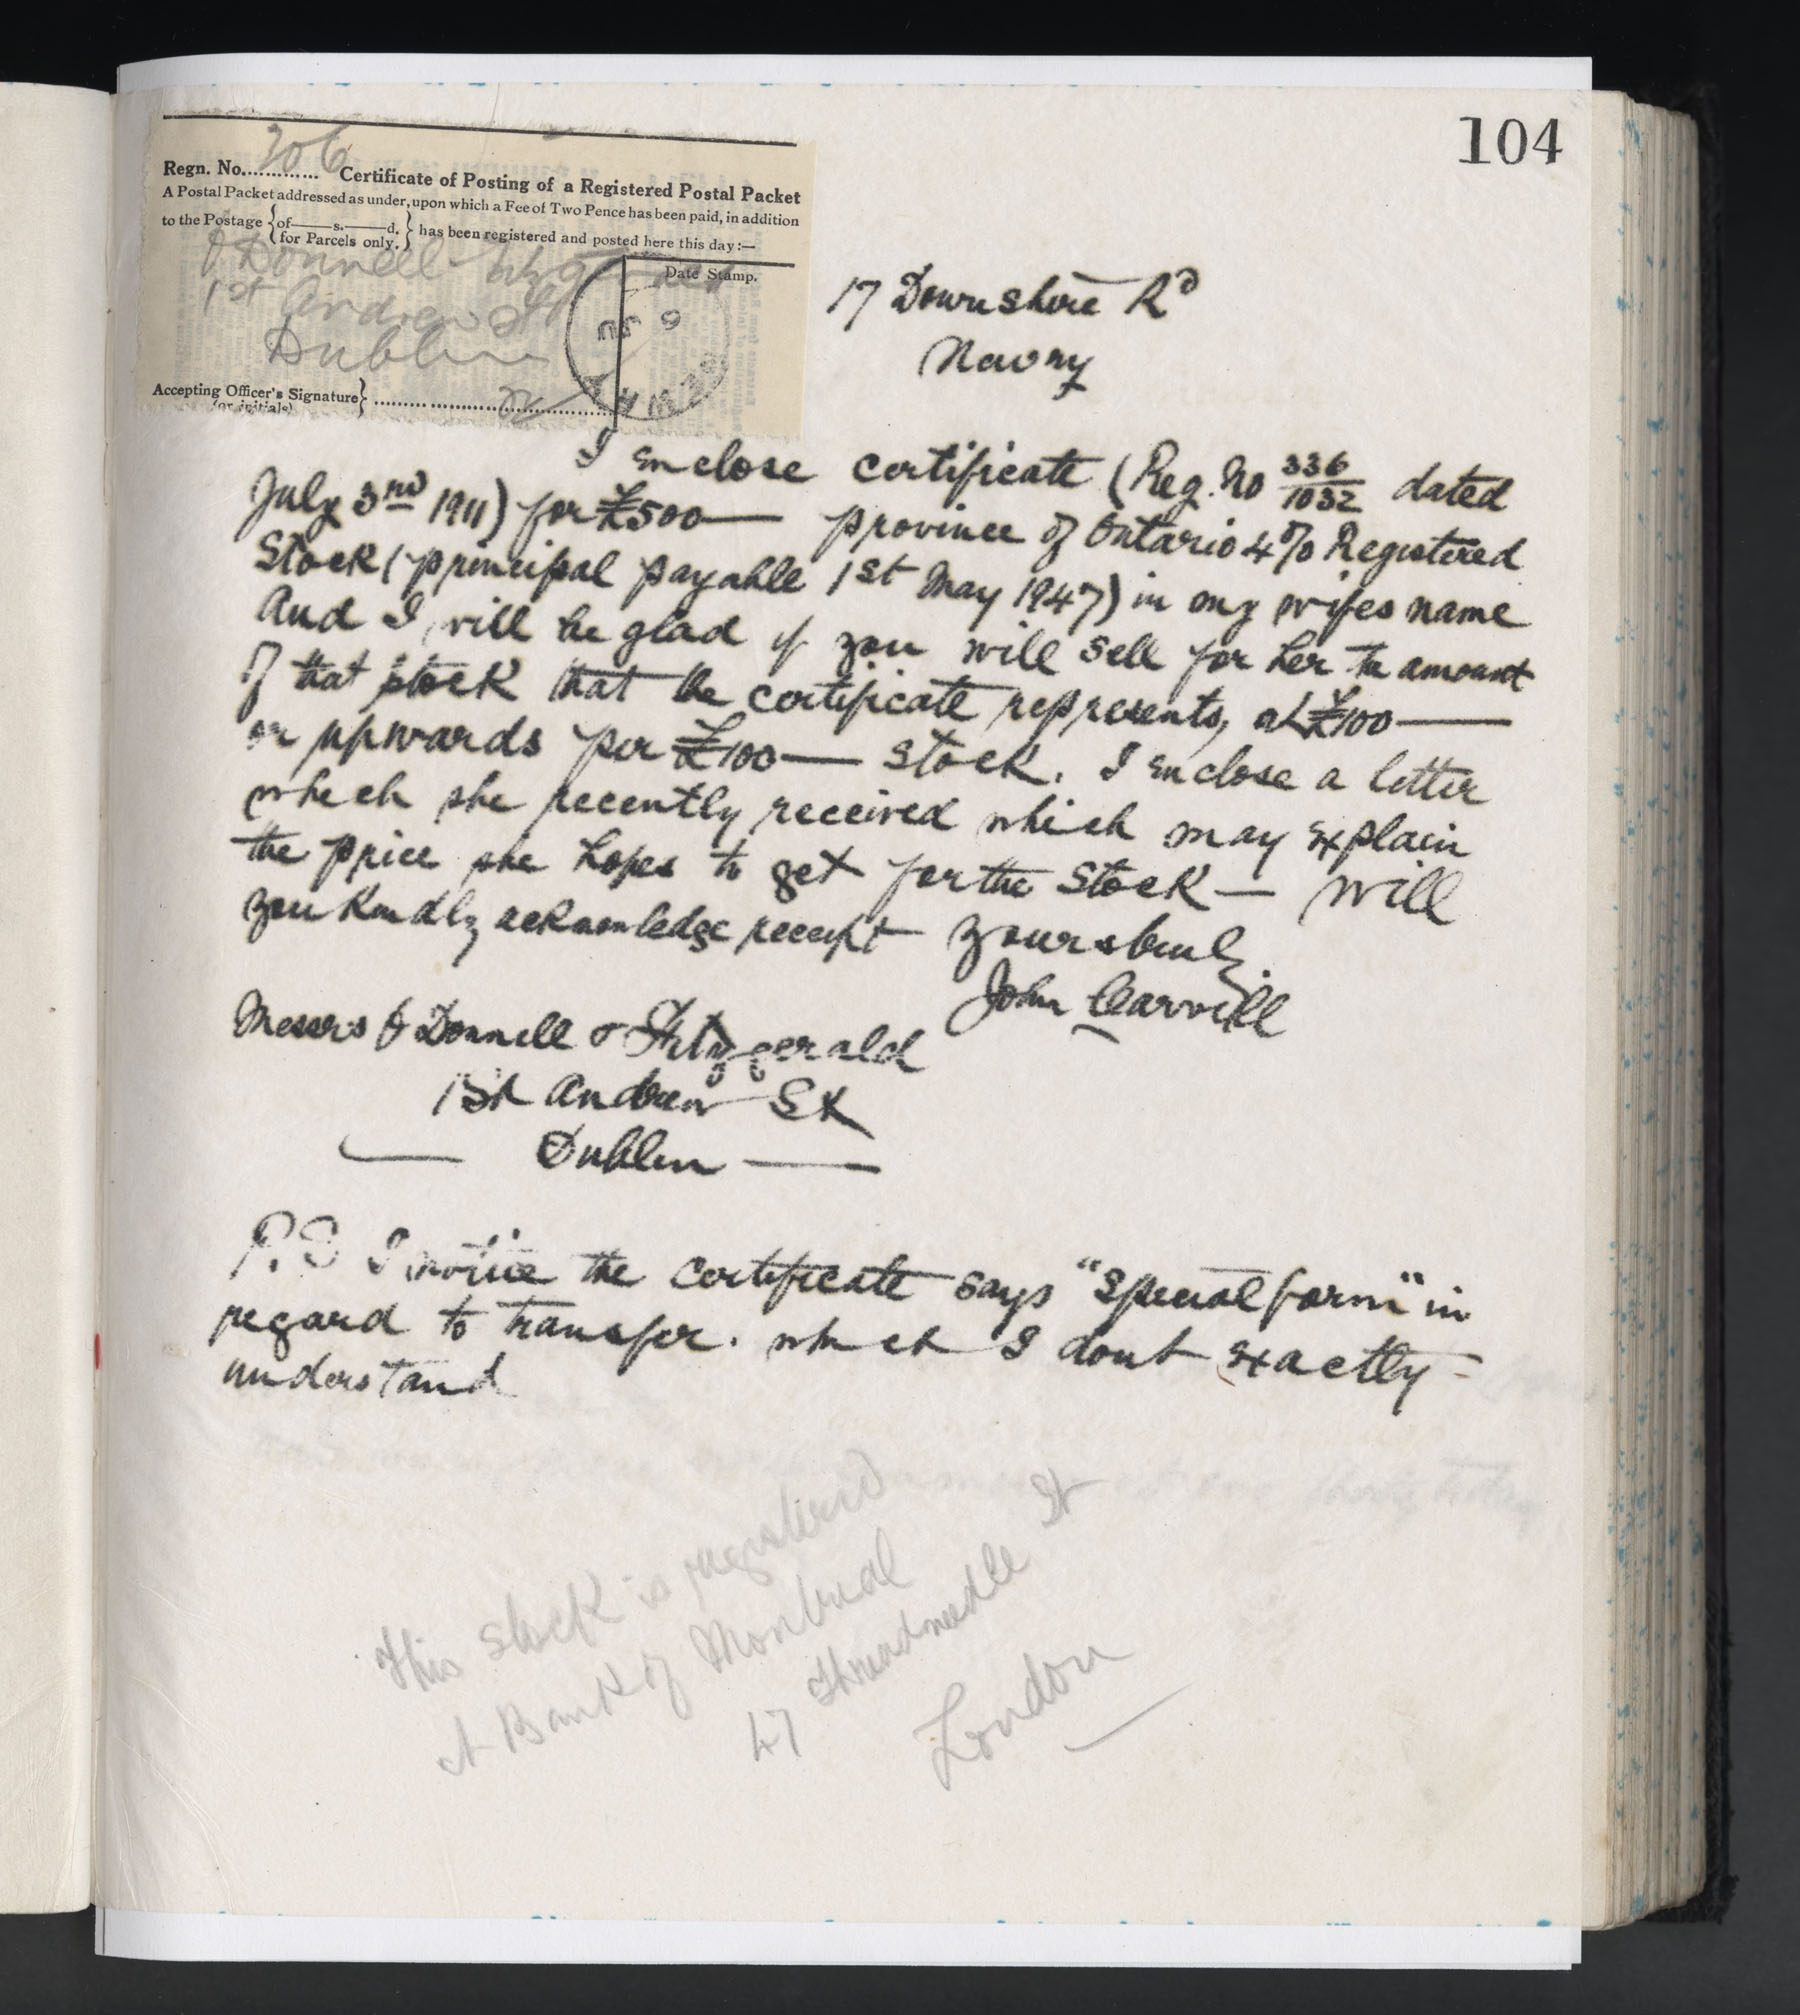 104
Regn. No. 206 Certificate of Posting of a Registered Postal Packet
A Postal Packet addressed as under, upon which a Fee of Two Pence has been paid, in addition
to the Postage {of——s.——d. for Parcels only.} has been registered and posted here this day:—
Date Stamp.
O'Donnell
1 St Andrew St
Dublin
Accepting Officer's Signature (or initials)}
17 Downshire Rd
Newry
I enclose certificate (Reg. No 336/1032 dated
July 3rd 1911) for £500— province of Ontario 4% Registered
Stock (principal payable 1st May 1947) in my wifes name
And I will be glad if you will sell for her the amount
of that stock that the certificate represents, at £100—
or upwards per £100— stock. I enclose a letter
which she recently received which may explain
the price she hopes to get for the stock— Will
you kindly acknowledge receipt yours truly
John Carvill
Messrs O'Donnell & Fitzgerald
1 St Andrew St
— Dublin —
P.S I notice the certificate says "special form" in
regard to transfer. which I dont exactly
understand
This stock is registered
at Bank of Montreal
47 Threadneedle St
London